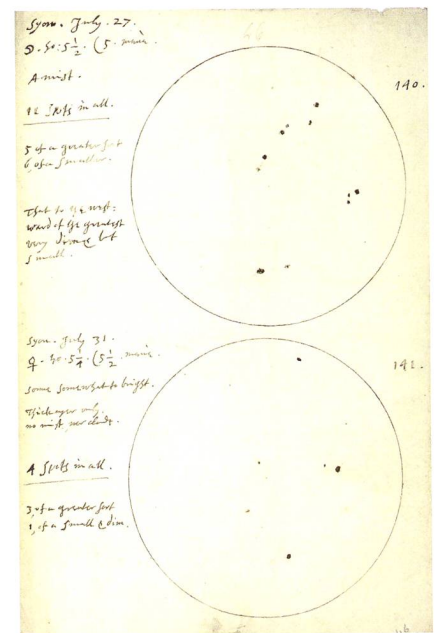 Syon. July. 27.
☉. ho: 5 1/2. (5. maine.
A mist.
140.
12 Spots in all.
5 of a greater sort
6 of a smaller.
That to the west:
ward of the greatest
very but
small.
Syon. July 31.
ho. 5 1/4. (5 1/2. maine.
some somewhat to bright.
Thick ayer only.
no mist, nor cloude.
141.
4 Spots in all.
3, of a greater sort
1, of a small & dim.